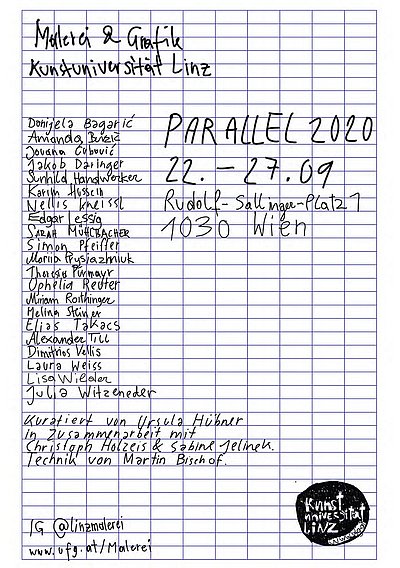 Malerei & Grafik
Kunstuniversität Linz
PARALLEL 2020
22. – 27.09
Rudolf-Sallinger-Platz 1
1030 Wien
Donijela Bagarić
Amanda Burzić
Jovana Čubović
Jakob Daringer
Sunhild Handwerker
Karim Hussein
Nellis Kneissl
Edgar Lessig
SARAH MÜHLBACHER
Simon Pfeiffer
Mariia Prysiazhniuk
Theresia Pürmayr
Ophelia Reuter
Miriam Roithinger
Melina Steiner
Elias Takacs
Alexander Till
Dimitrios Vellis
Laura Weiss
Lisa Wieder
Julia Witzeneder
Kuratiert von Ursula Hübner
In Zusammenarbeit mit
Christoph Holzeis & Sabine Jelinek.
Technik von Martin Bischof.
Kunst
universität
LINZ
IG @linzmalerei
www.ufg.at/Malerei